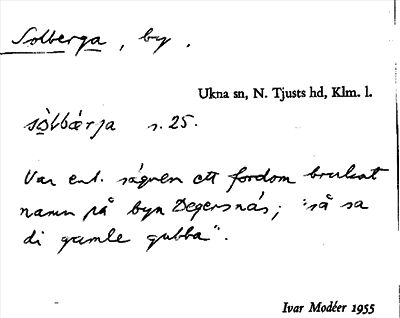 Solberga, by.
Ukna sn, N. Tjusts hd, Klm. l.
sòlbærja s. 25.
Var enl. sägnen ett fordom brukat
namn på byn Degersnäs; "så sa
di gamle gubba".
Ivar Modéer 1955